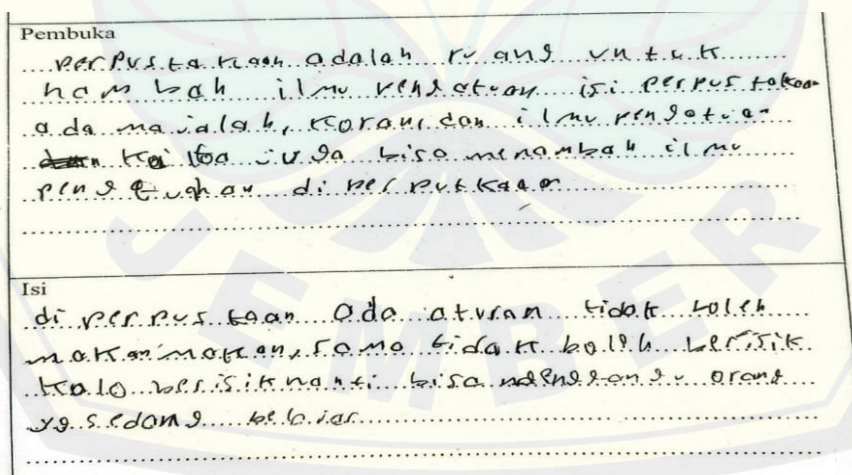 Pembuka
perpustakaan adalah ruang untuk
nambah ilmu pengatuan isi perpustakaan
ada majalah, koran, dan ilmu pengatuan
kita juga bisa menambah ilmu
di perpuskaan
Isi
di perpustaan ada aturan tidak boleh
makan makan, sama tidak boleh berisik
kalo berisik nanti bisa mengganggu orang
yg sedang belajar
JEMBER